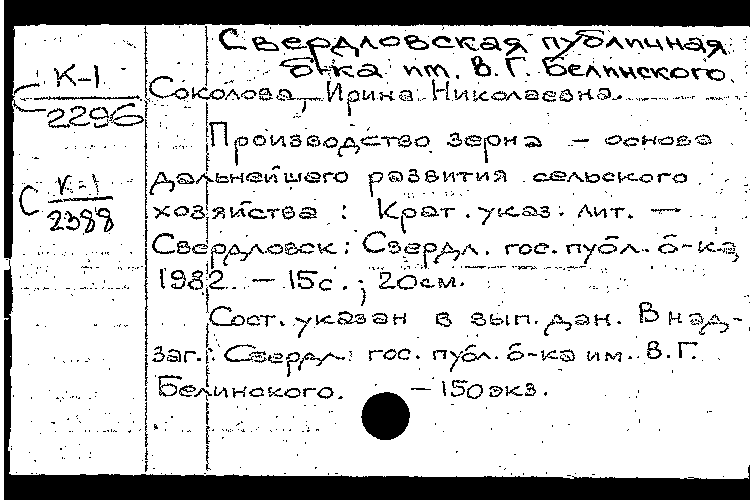 Свердловская публичная
б-ка им. В.Г. Белинского.
С К-1
2296
Соколова, Ирина Николаевна.
Производство зерна – основа
дальнейшего развития сельского
С К-1
2388
хозяйства : Крат. указ. лит. –
Свердловск: Свердл. гос. публ. б-ка,
1982 – 15с. ; 20см.
Сост. указан в вып. дан. В над-
заг.: Свердл. гос. публ. б-ка им. В.Г.
Белинского. – 150 экз.